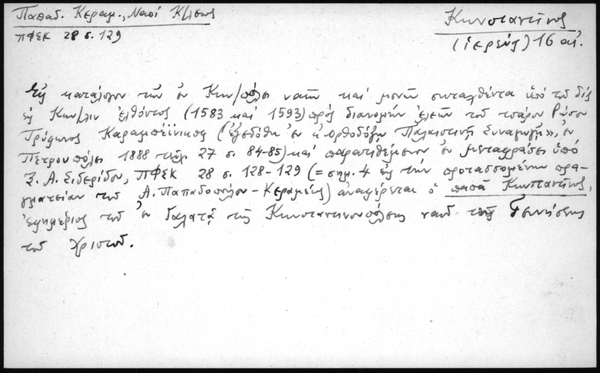 Παπαδ. Κεραμ., Ναοί Κ/λεως
ΠΦΣΚ 28 σ. 129
Κωνσταντῖνος
(ἱερεύς) 16 αἰ.
Εἰς κατάλογον τῶν ἐν Κων/πόλει ναῶν καί μονῶν συνταχθέντα ὑπό τοῦ δίς
εἰς Κων/λιν ἐλθόντος (1583 καί 1593) πρός διανομήν ἐλεῶν τοῦ τσάρου Ρώσου
Τρύφωνος Καραμπέϊνικος (ἐξεδόθη ἐν «Ὀρθοδόξῳ Παλαιστινῇ Συναγωγῇ», ἐν
Πετρουπόλει 1888 τεῦχ. 27 σ. 84-85) καί παρατιθέμενον ἐν μεταφράσει ὑπό
Ξ. Α. Σιδερίδου, ΠΦΣΚ 28 σ. 128-129 (= σημ. 4 εἰς τήν προτασσομένην πρα-
γματείαν τοῦ Α. Παπαδοπούλου-Κεραμέως) ἀναφέρεται ὁ παπᾶ Κωνσταντῖνος,
ἐφημέριος τοῦ ἐν Γαλατᾷ τῆς Κωνσταντινουπόλεως ναοῦ τῆς Γεννήσεως
τοῦ Χριστοῦ.